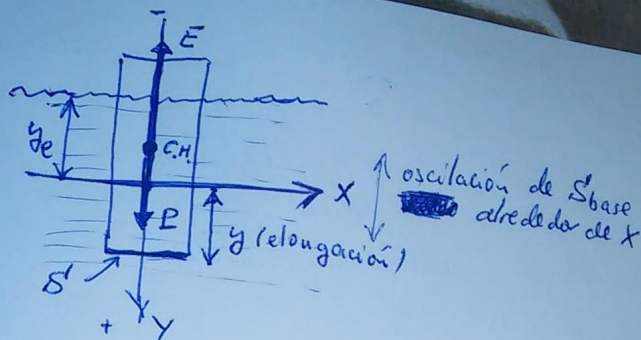 -
E
ye
C.H.
X
P
y (elongación)
S
+ Y
oscilación de Sbase
alrededor de X